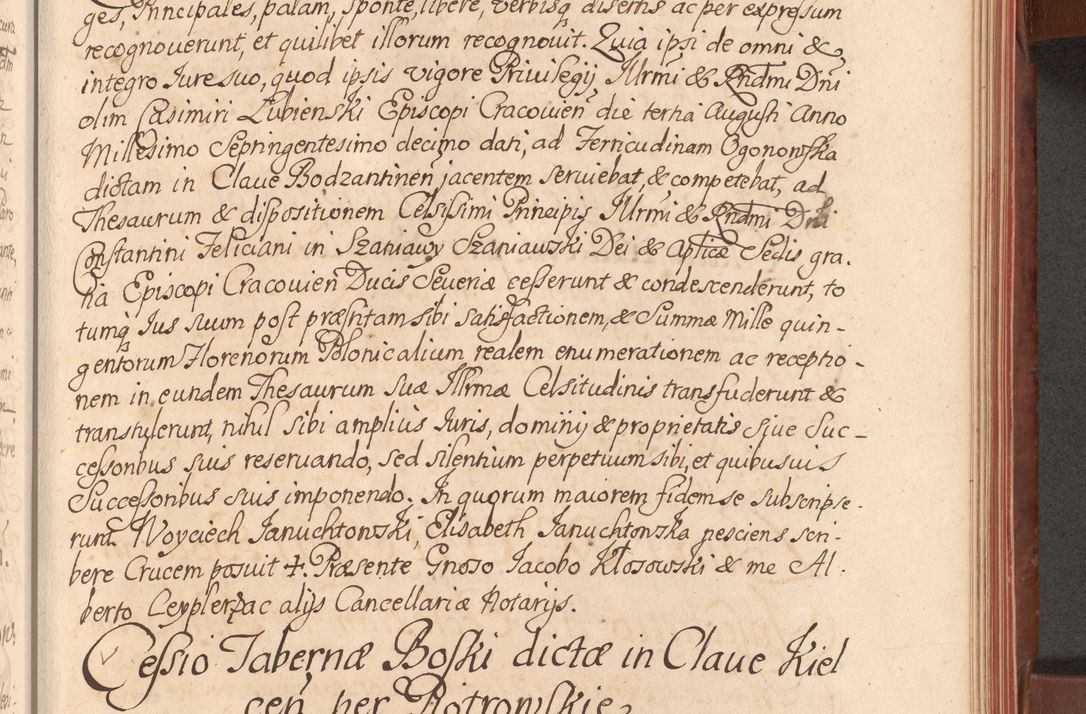 ges, Principales, palam, sponte, libere, verbisq disertis ac per expressum
recognoverunt, et quilibet illorum recognovit. Quia ipsi de omni &
integro Jure suo, quod ipsis vigore Privilegij Illrmi & Rndmi Dni
olim Casimiri Łubienski Episcopi Cracovien die tertia Augusti Anno
Millesimo Septingentesimo decimo dati, ad Terricudinam Ogonowska
dictam in Clave Bodzantinen jacentem serviebat, & competebat, ad
Thesaurum & dispositionem Celsissimi Principis Illrmi & Rndmi Dni
Constantini Feliciani in Szaniawy Szaniawski Dei & Aplicæ Sedis gra.
tia Episcopi Cracovien Ducis Severiæ cesserunt & condescenderunt, to
tumq Jus suum post præsntam sibi satisfactionem, & Summæ Mille quin-
gentorum Florenorum Polonicalium realem enumerationem ac receptio-
nem in eundem Thesaurum suæ Illrmæ Celsitudinis transfuderunt &
transtulerunt, nihil sibi amplius Juris, dominij & proprietatis sive Suc-
cessoribus suis reservando, sed silentium perpetuum sibi, et quibusvis
Successoribus suis imponendo. In quorum maiorem fidem se subscripse.
runt. Woyciech Januchtowski, Elisabeth Januchtowska nesciens scri-
bere Crucem posuit ✝. Præsente Gnoso Jacobo Kłosowski & me Al.
berto Ceypler ac alijs Cancellariæ Notarijs.
Cessio Tabernæ Boski dictæ in Clave Kiel
cen per Piotrowskie